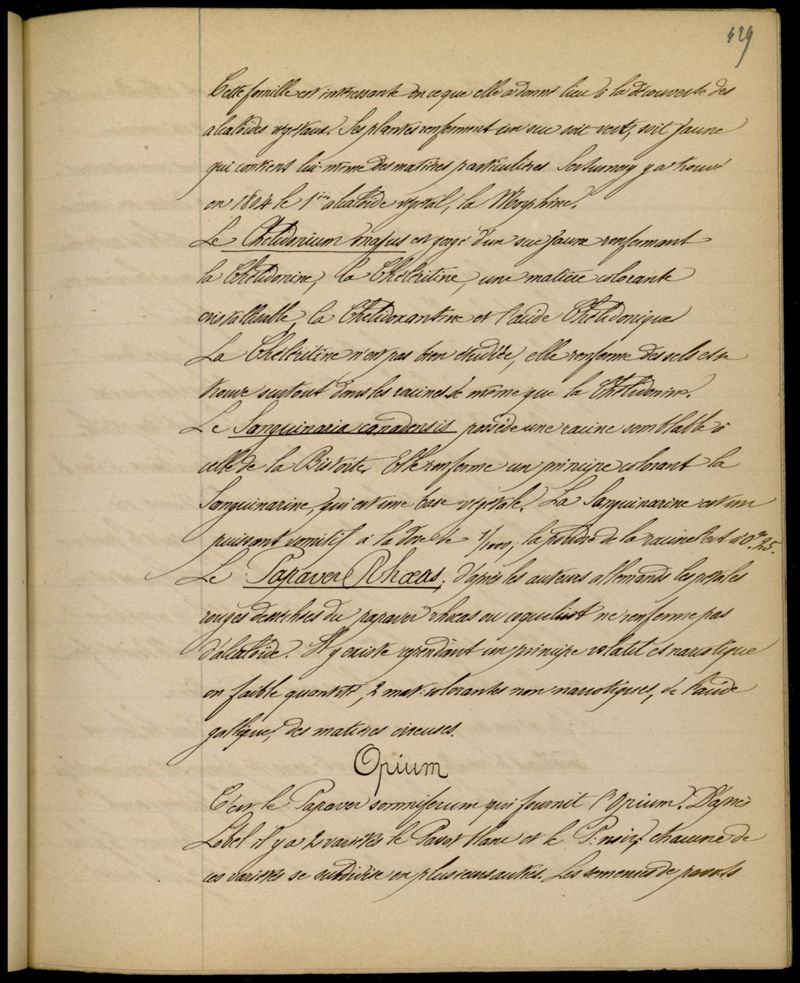 429
Cette famille est intéressante en ce que elle a donné lieu à la découverte des
alcaloïdes végétaux. Ses plantes renferment un suc soit vert, soit jaune
qui contient lui-même des matières particulières Serturney y a trouvé
en 1804 le 1er alcaloïde végétal, la Morphine.
Le Chelidonium majus est gorgé d'un suc jaune renfermant
la Chélidonine, la Chéléritine, une matière colorante
cristallisable, la Chélidoxantine et l'acide Chélidonique
La Chéléritine n'est pas bien étudiée, elle renferme des sels et se
trouve surtout dans les racines de même que la Chélidonine.
Le Sanguinaria canadensis possède une racine semblable à
celle de la Bistorte. Elle renferme un principe colorant la
Sanguinarine, qui est une base végétale. La Sanguinarine est un
puissant vomitif à la dose de 1/1000, la poudre de la racine l'est à 0gr 25.
Le Papaver Rhœas, d'après les auteurs allemands les pétales
rouges desséchés du papaver rhœas ou coquelicot ne renferme pas
d'alcaloïde. Il y existe cependant un principe volatil et narcotique
en faible quantité, 2 mat. colorantes non narcotiques, de l'acide
gallique, des matières cireuses.
Opium
C'est le Papaver somniferum qui fournit l'Opium. D'après
Lobel il y a 2 variétés le Pavot blanc et le P. noir, chacune de
ces variétés se subdivise en plusieurs autres. Les semences de pavots